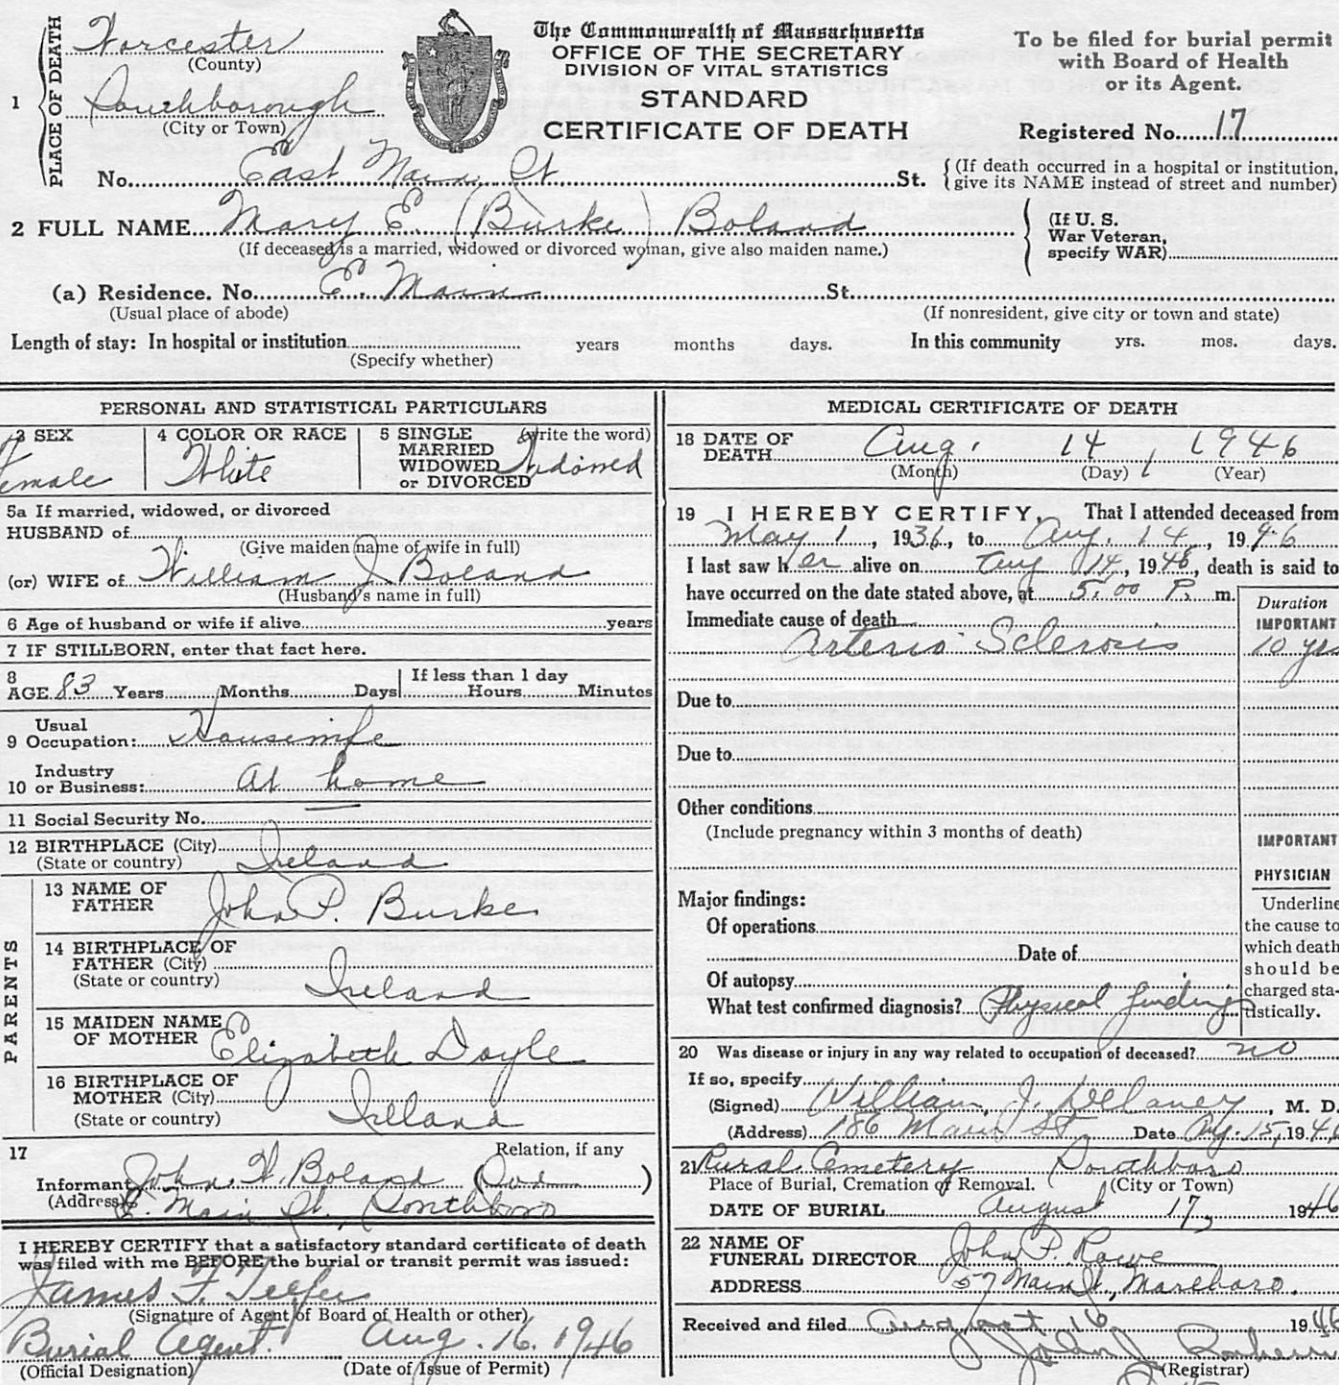 PLACE OF DEATH
1
Worcester
(County)
Southborough
(City or Town)
No. East Main St. St.
The Commonwealth of Massachusetts
OFFICE OF THE SECRETARY
DIVISION OF VITAL STATISTICS
STANDARD
CERTIFICATE OF DEATH
To be filed for burial permit
with Board of Health
or its Agent.
Registered No. 17
(If death occurred in a hospital or institution,
give its NAME instead of street and number)
2 FULL NAME Mary E. (Burke) Boland
(If deceased is a married, widowed or divorced woman, give also maiden name.)
(If U. S.
War Veteran,
specify WAR)
(a) Residence. No. E. Main St.
(Usual place of abode)
(If nonresident, give city or town and state)
Length of stay: In hospital or institution years months days. In this community yrs. mos. days.
(Specify whether)
PERSONAL AND STATISTICAL PARTICULARS
3 SEX
Female
4 COLOR OR RACE
White
5 SINGLE (write the word)
MARRIED
WIDOWED
or DIVORCED Widowed
5a If married, widowed, or divorced
HUSBAND of
(Give maiden name of wife in full)
(or) WIFE of William J. Boland
(Husband's name in full)
6 Age of husband or wife if alive years
7 IF STILLBORN, enter that fact here.
8
AGE 83 Years Months Days
If less than 1 day
Hours Minutes
9 Usual
Occupation: Housewife
10 Industry
or Business: At home
11 Social Security No.
12 BIRTHPLACE (City)
(State or country) Ireland
PARENTS
13 NAME OF
FATHER John P. Burke
14 BIRTHPLACE OF
FATHER (City)
(State or country) Ireland
15 MAIDEN NAME
OF MOTHER Elizabeth Doyle
16 BIRTHPLACE OF
MOTHER (City)
(State or country) Ireland
17
Relation, if any
Informant John W. Boland (Son)
(Address) E. Main St., Southboro
I HEREBY CERTIFY that a satisfactory standard certificate of death
was filed with me BEFORE the burial or transit permit was issued:
James F. Telfer
(Signature of Agent of Board of Health or other)
Burial Agent. Aug. 16. 1946
(Official Designation) (Date of Issue of Permit)
MEDICAL CERTIFICATE OF DEATH
18 DATE OF
DEATH Aug. 14, 1946
(Month) (Day) (Year)
19 I HEREBY CERTIFY, That I attended deceased from
May 1, 1936, to Aug. 14, 1946
I last saw her alive on Aug 14, 1946, death is said to
have occurred on the date stated above, at 5:00 P. m.
Duration
IMPORTANT
Immediate cause of death
Arterio Sclerosis 10 yrs
Due to
Due to
Other conditions
(Include pregnancy within 3 months of death)
IMPORTANT
PHYSICIAN
Underline
the cause to
which death
should be
charged sta-
tistically.
Major findings:
Of operations
Date of
Of autopsy
What test confirmed diagnosis? Physical findings
20 Was disease or injury in any way related to occupation of deceased? no
If so, specify
(Signed) William J. Delaney, M. D.
(Address) 186 Main St. Date Aug. 15, 1946
21 Rural Cemetery Southboro
Place of Burial, Cremation or Removal. (City or Town)
DATE OF BURIAL August 17, 1946
22 NAME OF
FUNERAL DIRECTOR John P. Rowe
ADDRESS 57 Main St., Marlboro.
Received and filed August 16 1946
John J.
(Registrar)